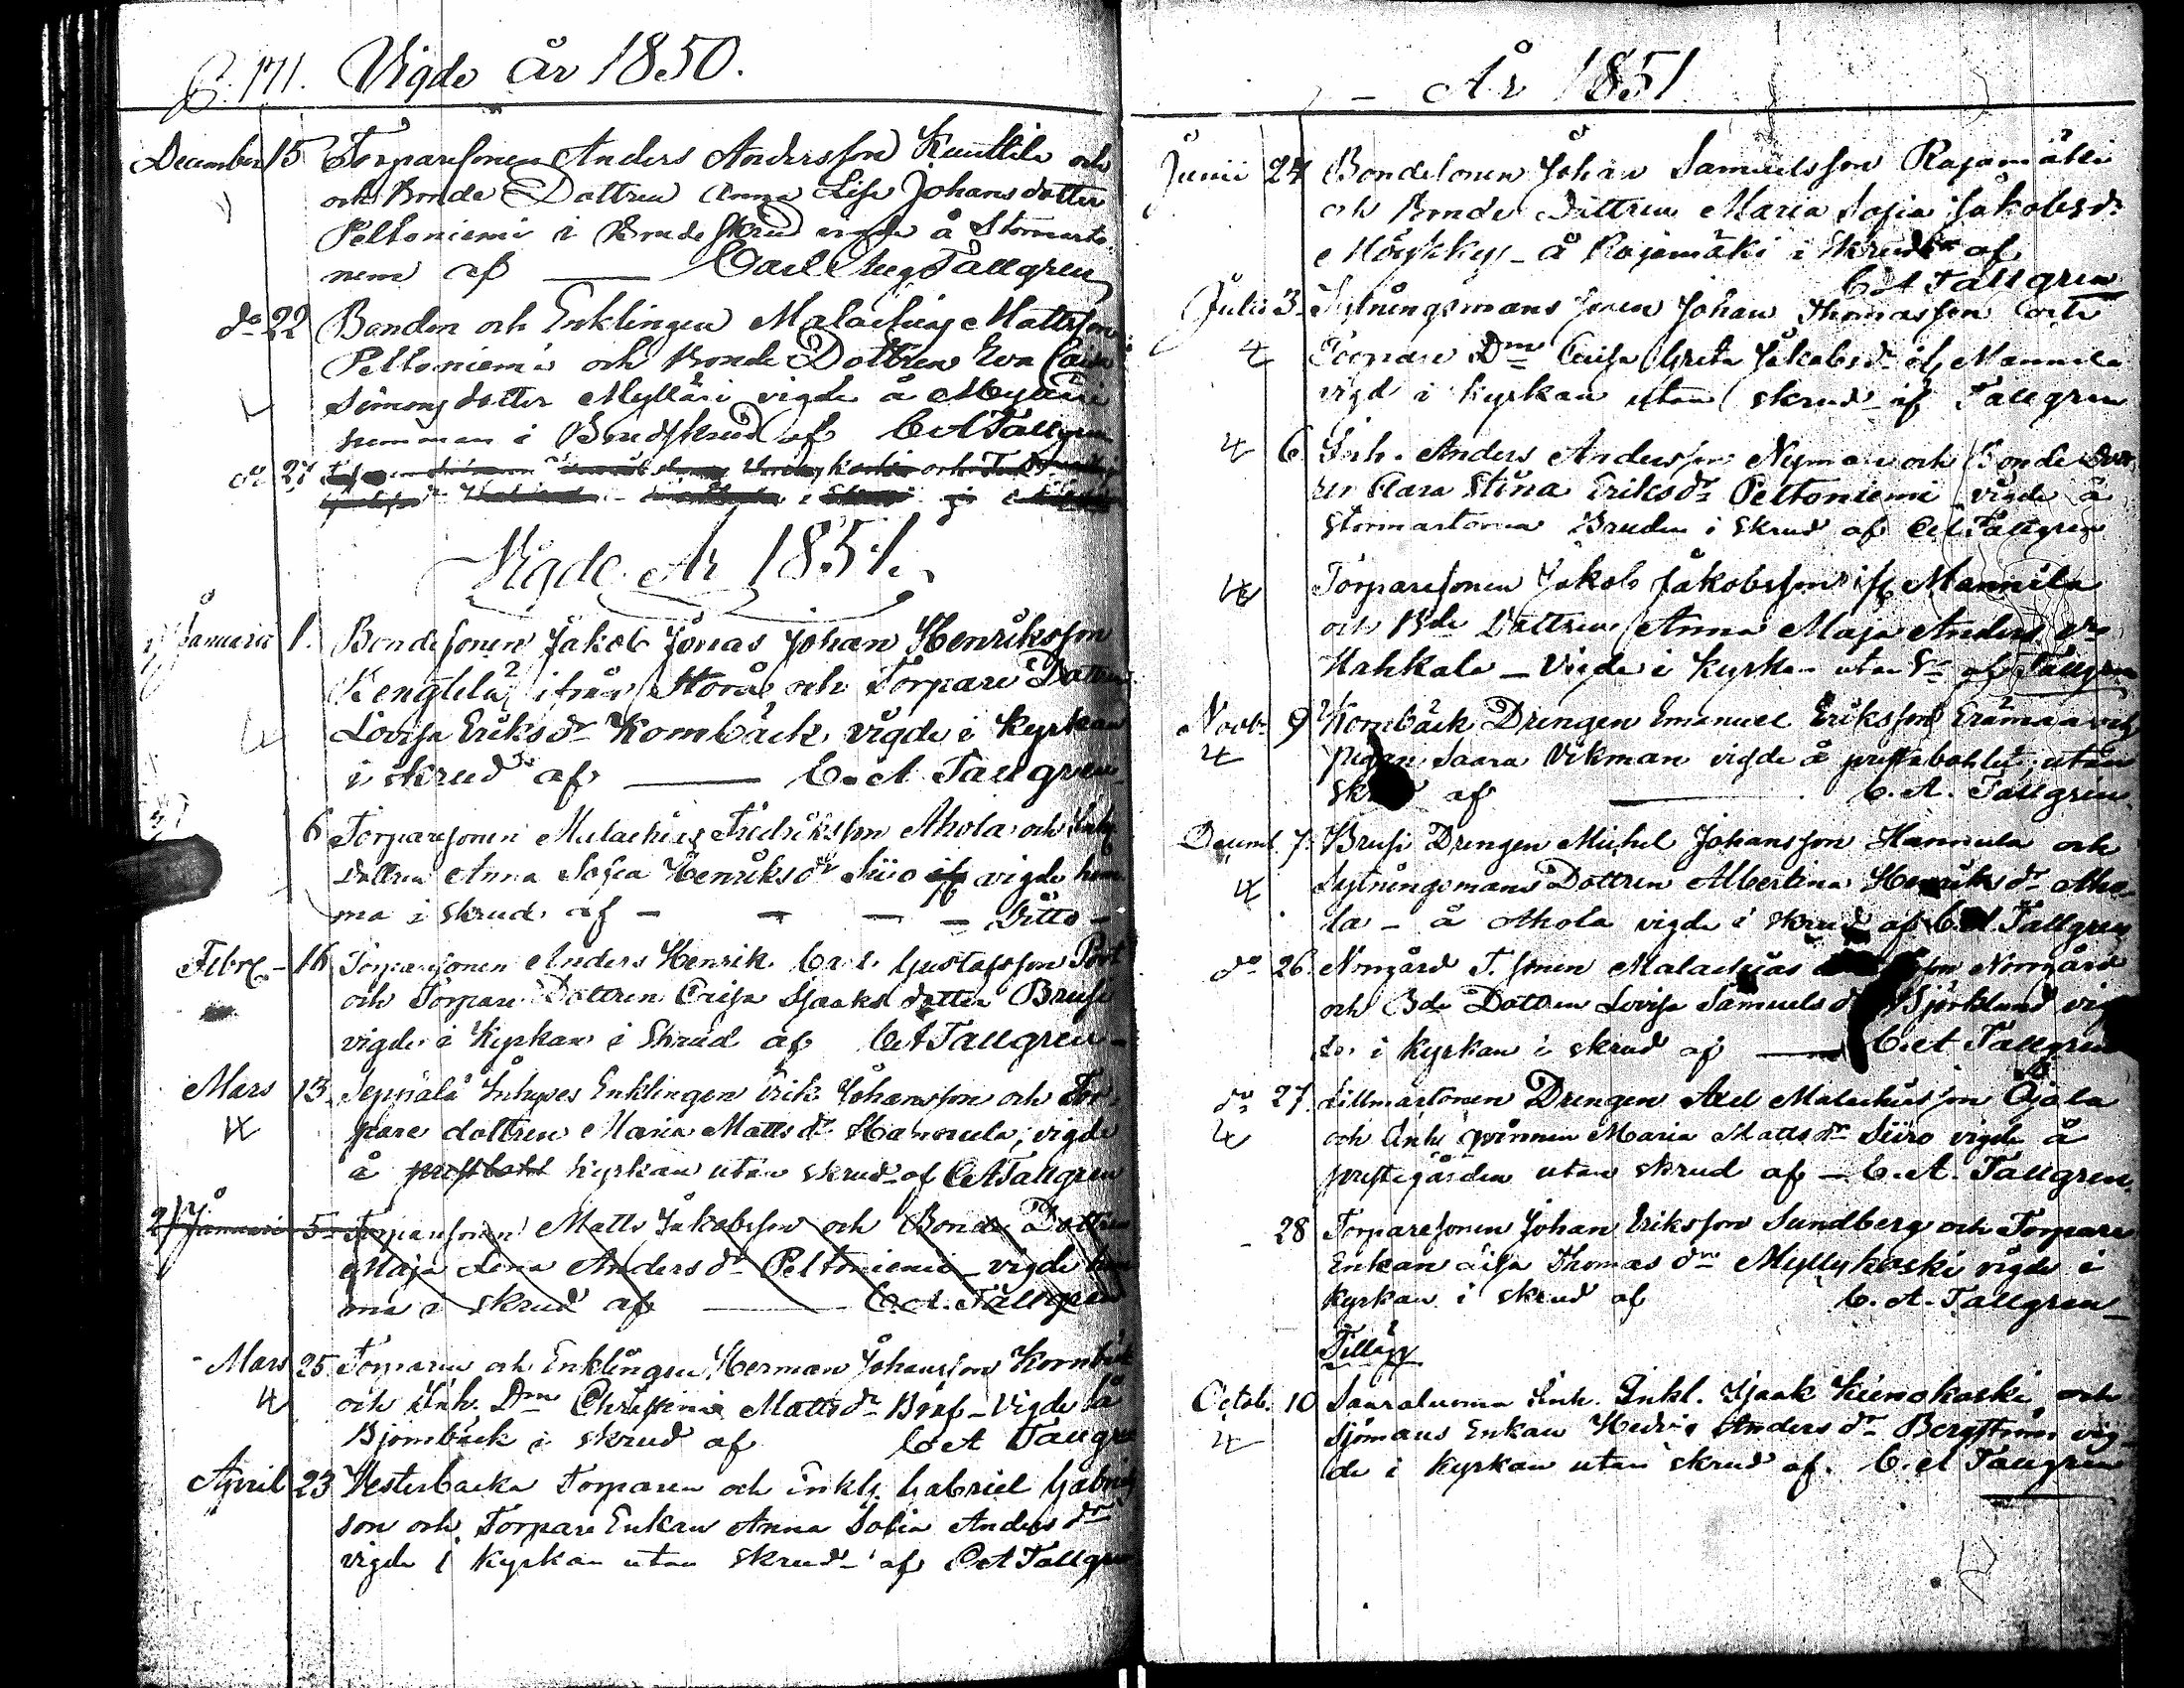 P. 171. Vigde år 1850.
December 15 Torparesonen Anders Andersson Kuuttila och
och Bonde Dottren Anna Lisa Johansdotter
Peltoniemi i Brudskrud å Stormarto
nem af — Carl Aug Tallgren
do 22 Bonden och Enklingen Malachias Mattsson
Peltoniemi och Bonde Dottren Eva Caisa
Simonsdotter Mylläri vigde å Mylläri
hemman i Brudskrud af C A Tallgren
do 27
Vigde År 1851.
Januari 1. Bondesonen Jakob Jonas Johan Henriksson
Kenglilä ifrån Storå och Torpare Dottren
Lovisa Eriksdr Kornbäck vigde i Kyrkan
i skrud af — C. A Tallgren
6 Torparesonen Malachias Fredriksson Ahola och Inh
Dottren Anna Sofia Henriksdr Siiro vigde hem
ma i skrud af — — — Ditto —
Febr. 16 Torparesonen Anders Henrik Carl Gustafsson Port
och Torpare Dottren Caisa Isaaksdotter Brusi
vigde i Kyrkan i Skrud af C A Tallgren
Mars 13 Seppälä Inhyses Enklingen Erik Johansson och Tor
pare dottren Maria Mattsdr Hannula, vigde
å prestbohl Kyrkan utan skrud af C A Tallgren
2/ Januari 5 Torparesonen Matts Jakobsson och Bonde Dottren
Maja Lena Andersdr Peltoniemi — vigde hem
ma i skrud af — C. A. Tallgren
Mars 25 Torparen och Enklingen Herman Johansson Kornbäck
och Inh. Dm Christina Mattsdr Bräf — Vigde på
Björnbäck i skrud af C A Tallgren
April 23 Vesterbacka Torparen och Enkl. Gabriel Gabriels
son och Torpare Enkan Anna Sofia Andersdr
vigde i Kyrkan utan skrud af C A Tallgren
— År 1851
Junii 24 Bondesonen Johan Samuelsson Rajamäki
och Bonde Dottren Maria Sofia Jakobsdr
Möykky — å Rajamäki i Skrud af
C A Tallgren
Julii 3 Sytningsmans sonen Johan Thomasson och
Torpare Dm Caisa Greta Jakobsdr Mannila
vigd i Kyrkan utan skrud af Tallgren
6 Inh. Anders Andersson Nyman och Bonde Dott
ren Clara Stina Eriksdr Peltoniemi vigde å
Stormartonen Bruden i Skrud af C A Tallgren
Torparesonen Jakob Jakobsson Mannila
och Bde Dottren Anna Maja Andersdr
Hahkala — Vigde i Kyrkan utan Sd af Tallgren
Novbr 9 Kornbäck Drengen Emanuel Eriksson Erämaa och
pigan Saara Vikman vigde å prestabohlet, utan
skrud af — C. A. Tallgren
Decemb. 7. Brusi Drengen Michel Johansson Hannula och
Sytningsmans Dottren Albertina Henriksdr Aho
la — å Ahola vigde i skrud af C A Tallgren
do 26 Norrgård T. sonen Malachias son Norrgård
och Bde Dottren Lovisa Samuelsd Björklund vig
de i Kyrkan i skrud af — C. A Tallgren
do 27. Lillmårtonen Drengen Axel Malachiasson Ojala
och Inh qvinnan Maria Mattsdr Siiro vigde å
prestegården utan skrud af — C. A. Tallgren.
28 Torparesonen Johan Eriksson Sundberg och Torpare
Enkan Lisa Thomasdr Myllykoski vigde i
Kyrkan i skrud af C. A. Tallgren
Tillägg
Octob. 10 Saaraluoma Inh. Enkl. Isaak Kiimokoski och
Sjömans Enkan Hedvig Andersdr Bergström vig
de i Kyrkan utan skrud af. C. A Tallgren